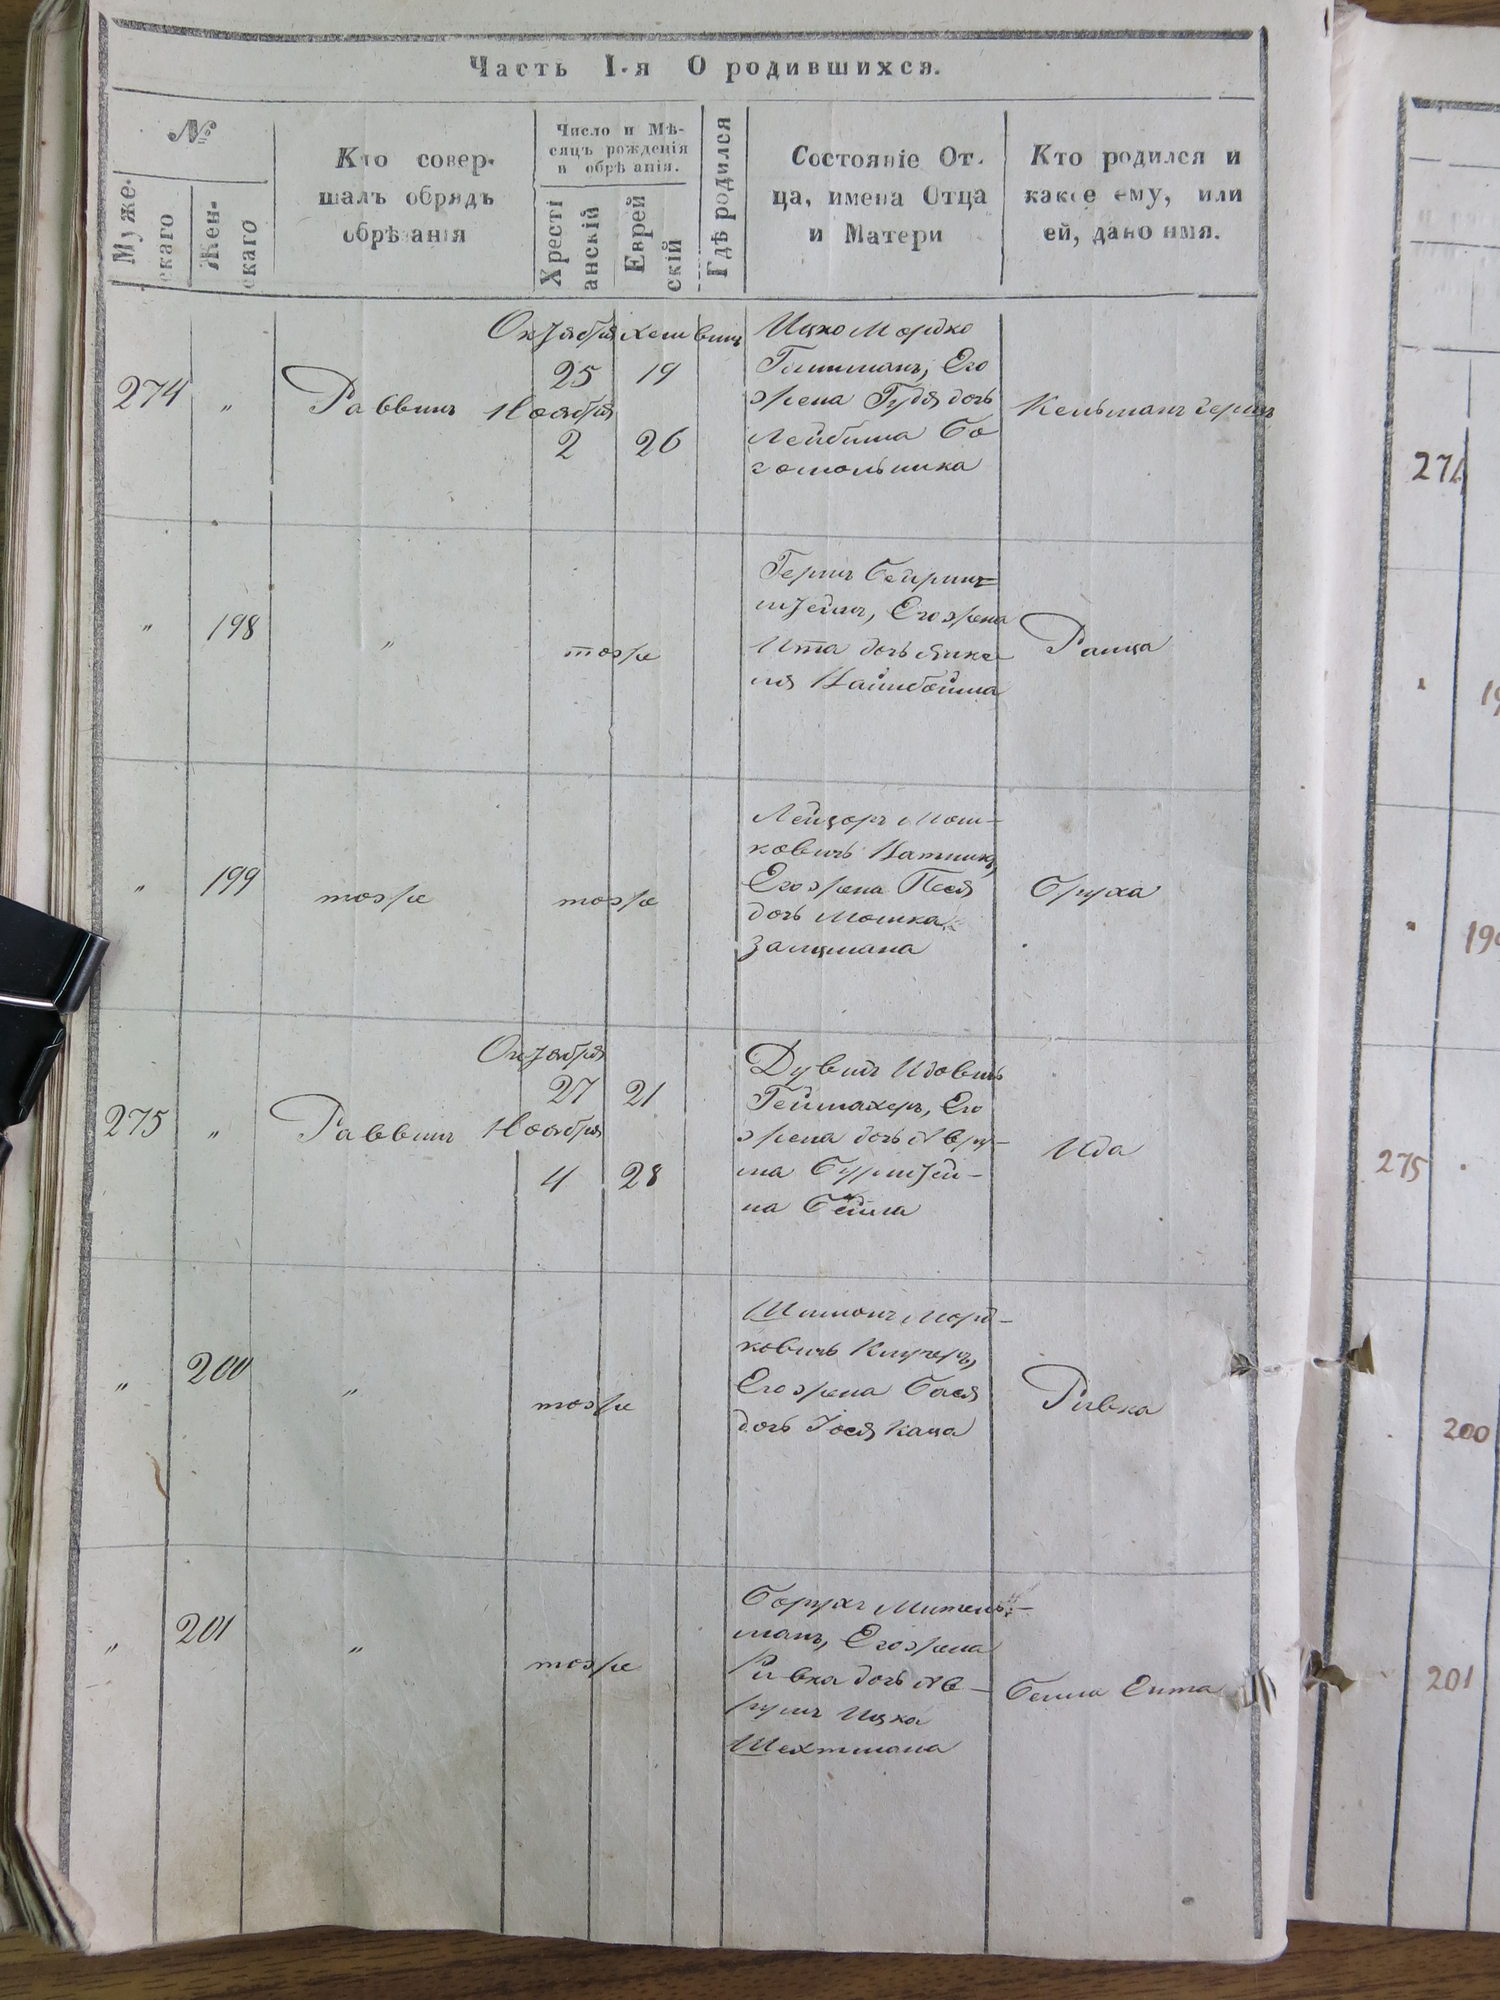 Часть I-я О родившихся.
№
Муже-
скаго
Жен-
скаго
Кто совер-
шалъ обрядъ
обрѣзанія
Число и Мѣ-
сяцъ рожденія
и обрѣзанія.
Хресті
анскій
Еврей
скій
Гдѣ родился
Состояніе От-
ца, имена Отца
и Матери
Кто родился и
какое ему, или
ей, дано имя.
274
"
Раввинъ
Октября
25
Ноября
2
19
26
Ицко Мордко
Его
жена Гудя дочь
Лейбиша Бо
гомольника
Кельманъ Герш
"
198
"
тоже
Гершъ
штейнъ, Его жена
Ита дочь Янке
ля
"
199
тоже
тоже
Лейзоръ Мош-
ковичъ
Его жена Песя
дочь Мошка
Залцмана
Бруха
275
"
Раввинъ
Октября
27
Ноября
4
21
28
Дувидъ
Его
жена дочь Авру-
ма Бурштей-
на Бейла
Ида
"
200
"
тоже
Шимонъ Морд-
ковичъ Кнучеръ,
Его жена Бася
дочь Іося Каца
Ривка
"
201
"
тоже
Борухъ Митель-
манъ, Его жена
Ривка дочь Ав-
румъ Ицка
Шехтмана
Бейла Ента
274
275
200
201